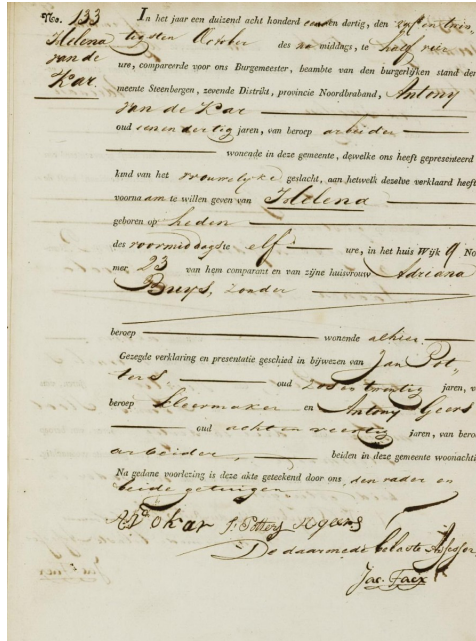 No. 133
Helena
van de
Kar.
In het jaar een duizend acht honderd een en dertig, den vyf en twin„
tigsten October des na middags, te half vier
ure, compareerde voor ons Burgemeester, beambte van den burgerlijken stand der
meente Steenbergen, zevende Distrikt, provincie Noordbraband, Antony
van de Kar
oud een en dertig jaren, van beroep arbeider
wonende in deze gemeente, dewelke ons heeft gepresenteerd
kind van het vrouwelyke geslacht, aan hetwelk dezelve verklaard heeft
voornaam te willen geven van Helena
geboren op heden
des voormiddags te elf ure, in het huis Wijk 9 No
mer, 23 van hem comparant en van zijne huisvrouw Adriana
Buys, zonder
beroep wonende alhier.
Gezegde verklaring en presentatie geschied in bijwezen van Jan Pot„
ters oud zes en twintig jaren, v
beroep kleermaker en Antony Geers
oud acht en veertig jaren, van bero
arbeider, beiden in deze gemeente woonachti
Na gedane voorlezing is deze akte geteekend door ons, den vader en
beide getuigen
J. Potters A. geers
De daarmede belaste Assessor
Jac. Faex